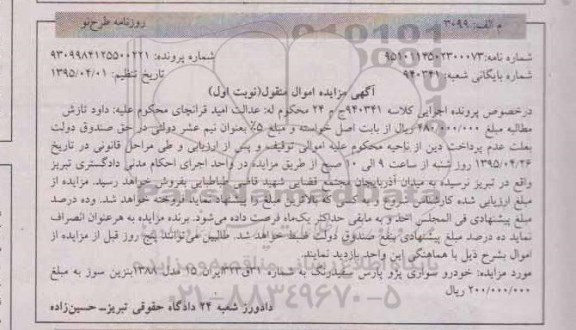 م الف: ۳۰۹۹ روزنامه طرح نو
شماره نامه: ۹۵۱۰۱۱۴۵۰۲۳۰۰۰۷۳ شماره پرونده: ۹۳۰۹۹۸۴۱۲۵۵۰۰۲۲۱
شماره بایگانی شعبه: ۹۴۰۳۴۱ تاریخ تنظیم: ۱۳۹۵/۰۴/۰۱
آگهی مزایده اموال منقول(نوبت اول)
درخصوص پرونده اجرایی کلاسه ۹۴۰۳۴۱ج م ۲۴ محکوم له: عدالت امید قرانچای محکوم علیه: داود تازش
مطالبه مبلغ ۴۸۰/۰۰۰/۰۰۰ ریال از بابت اصل خواسته و مبلغ ۵٪ بعنوان نیم عشر دولتی در حق صندوق دولت
بعلت عدم پرداخت دین از ناحیه محکوم علیه اموالی توقیف و پس از ارزیابی و طی مراحل قانونی در تاریخ
۱۳۹۵/۰۴/۲۶ روز شنبه از ساعت ۹ الی ۱۰ صبح از طریق مزایده در واحد اجرای احکام مدنی دادگستری تبریز
واقع در تبریز نرسیده به میدان آذربایجان مجتمع قضایی شهید قاضی طباطبایی بفروش خواهد رسید. مزایده از
مبلغ ارزیابی شده کارشناس شروع و به کسی که بالاترین مبلغ را پیشنهاد نماید فروخته خواهد شد. وده درصد
مبلغ پیشنهادی فی المجلس اخذ و به مابقی حداکثر یک‌ماه فرصت داده می‌شود. برنده مزایده به هرعنوان انصراف
نماید ده درصد مبلغ پیشنهادی بنفع صندوق دولت ضبط خواهد شد. طالبین می توانند پنج روز قبل از مزایده از
اموال بشرح ذیل با هماهنگی این واحد بازدید نمایند.
مورد مزایده: خودرو سواری پژو پارس سفیدرنگ به شماره ۳۱ق۳۱۳ایران ۱۵ مدل ۱۳۸۸بنزین سوز به مبلغ
۲۰۰/۰۰۰/۰۰۰ ریال
دادورز شعبه ۲۴ دادگاه حقوقی تبریزـ حسین‌زاده
۰۲۱-۸۸۳۴۹۶۷۰-۵